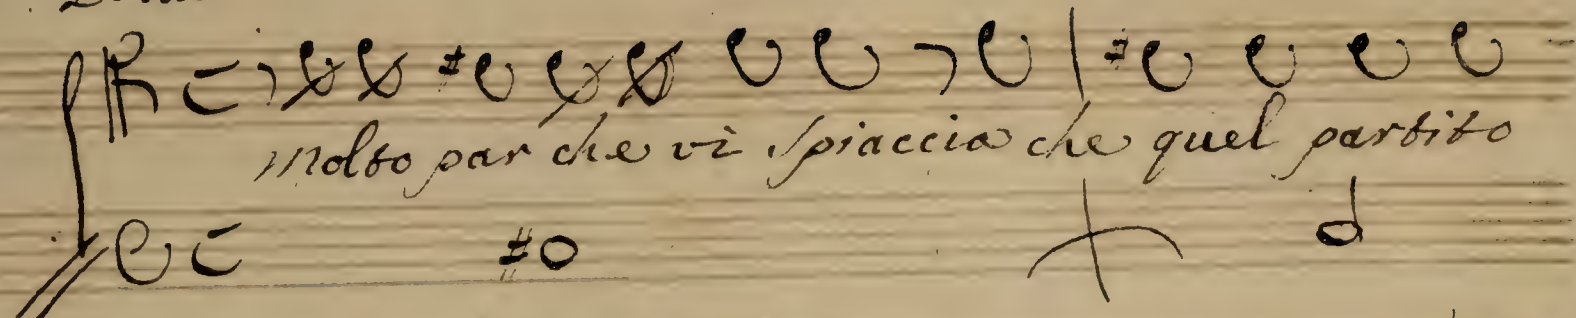 Molto par che vi spiaccia che quel partito